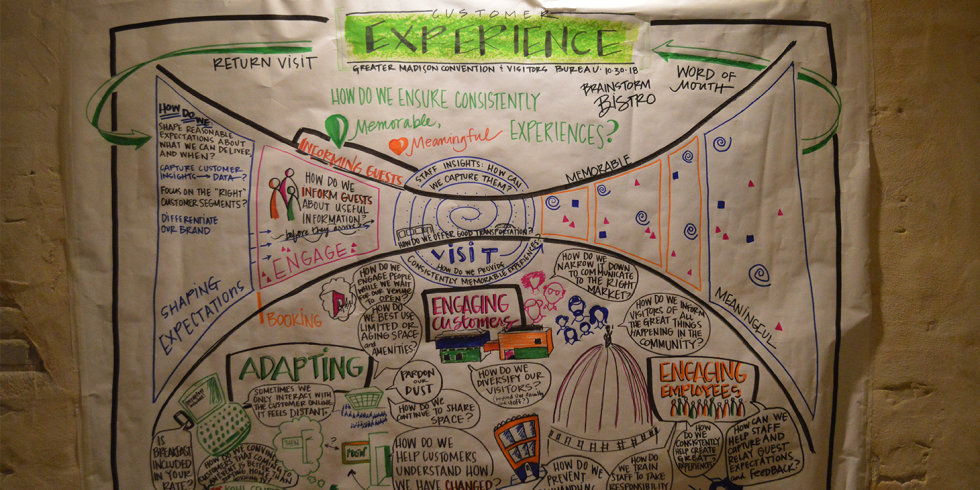 CUSTOMER
EXPERIENCE
GREATER MADISON CONVENTION + VISITORS BUREAU · 10.30.18
BRAINSTORM
BISTRO
RETURN VISIT
WORD OF
MOUTH
HOW DO WE ENSURE CONSISTENTLY
Memorable,
Meaningful
EXPERIENCES?
HOW
DO WE
SHAPE REASONABLE
EXPECTATIONS ABOUT
WHAT WE CAN DELIVER,
AND WHEN?
CAPTURE CUSTOMER
INSIGHTS → DATA → ?
FOCUS ON THE "RIGHT"
CUSTOMER SEGMENTS?
DIFFERENTIATE
OUR BRAND
SHAPING
EXPECTATIONS
INFORMING GUESTS
HOW DO WE
INFORM GUESTS
ABOUT USEFUL
INFORMATION?
before they arrive?
ENGAGE
BOOKING
STAFF INSIGHTS: HOW CAN
WE CAPTURE THEM?
HOW DO WE OFFER GOOD TRANSPORTATION?
VISIT
HOW DO WE PROVIDE
CONSISTENTLY MEMORABLE EXPERIENCES?
MEMORABLE
MEANINGFUL
HOW DO WE
ENGAGE PEOPLE
WHILE WE WAIT
FOR OUR VENUE
TO OPEN
HOW DO
WE BEST USE
LIMITED OR
AGING SPACE
and
AMENITIES
ENGAGING
Customers
HOW DO WE
NARROW IT DOWN
TO COMMUNICATE
TO THE RIGHT
MARKET?
HOW DO WE INFORM
VISITORS OF ALL
THE GREAT THINGS
HAPPENING IN THE
COMMUNITY?
ADAPTING
SOMETIMES WE
ONLY INTERACT WITH
THE CUSTOMER ONLINE
IT FEELS DISTANT.
PARDON
OUR
DUST
HOW DO WE
CONTINUE TO SHARE
SPACE?
HOW DO WE
DIVERSIFY OUR
VISITORS?
ENGAGING
EMPLOYEES
IS
BREAKFAST
INCLUDED
IN YOUR
RATE?
HOW DO WE CONVINCE
THEN
?
HOW DO WE
HELP CUSTOMERS
UNDERSTAND HOW
WE HAVE CHANGED?
HOW DO WE
PREVENT
HOW DO
WE TRAIN
STAFF TO TAKE
RESPONSIBILITY
HOW
DO WE
CONSISTENTLY
HELP CREATE
GREAT
EXPERIENCES?
HOW CAN WE
HELP STAFF
CAPTURE AND
RELAY GUEST
EXPECTATIONS
and FEEDBACK?